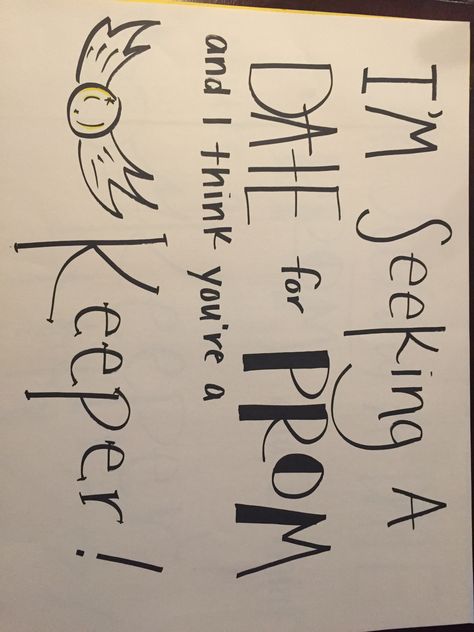 I'M Seeking A
DATE for PROM
and I think you're a
Keeper!